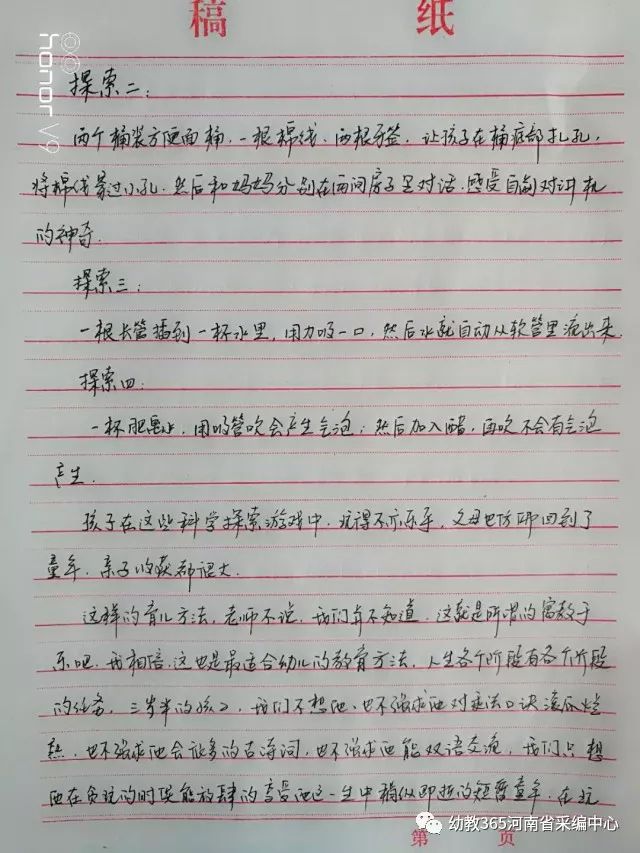 稿 纸
探索二:
两个桶装方便面桶,一根棉线,两根牙签,让孩子在桶底部扎孔,
将棉线穿过小孔,然后和妈妈分别在两间房子里对话,感受自制对讲机
的神奇.
探索三:
一根长管插到一杯水里,用力吸一口,然后水就自动从软管里流出来.
探索四:
一杯肥皂水,用吸管吹会产生气泡;然后加入醋,再吹不会有气泡
产生.
孩子在这些科学探索游戏中,玩得不亦乐乎,父母也仿佛回到了
童年,亲子收获都很大.
这样的育儿方法,老师不说,我们并不知道.这就是所谓的寓教于
乐吧.我相信,这也是最适合幼儿的教育方法,人生各个阶段有各个阶段
的任务,三岁半的孩子,我们不想他、也不强求他对乘法口诀滚瓜烂
熟,也不强求他会许多的古诗词,也不强求他能双语交流,我们只想
他在贪玩的时候能放肆的享受他这一生中稍纵即逝的短暂童年.在玩
第 页
幼教365河南省采编中心
honor V9